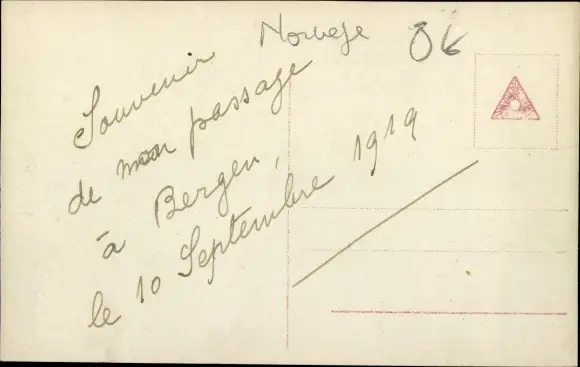 Norvege
Souvenir
de mon passage
à Bergen,
le 10 Septembre 1919